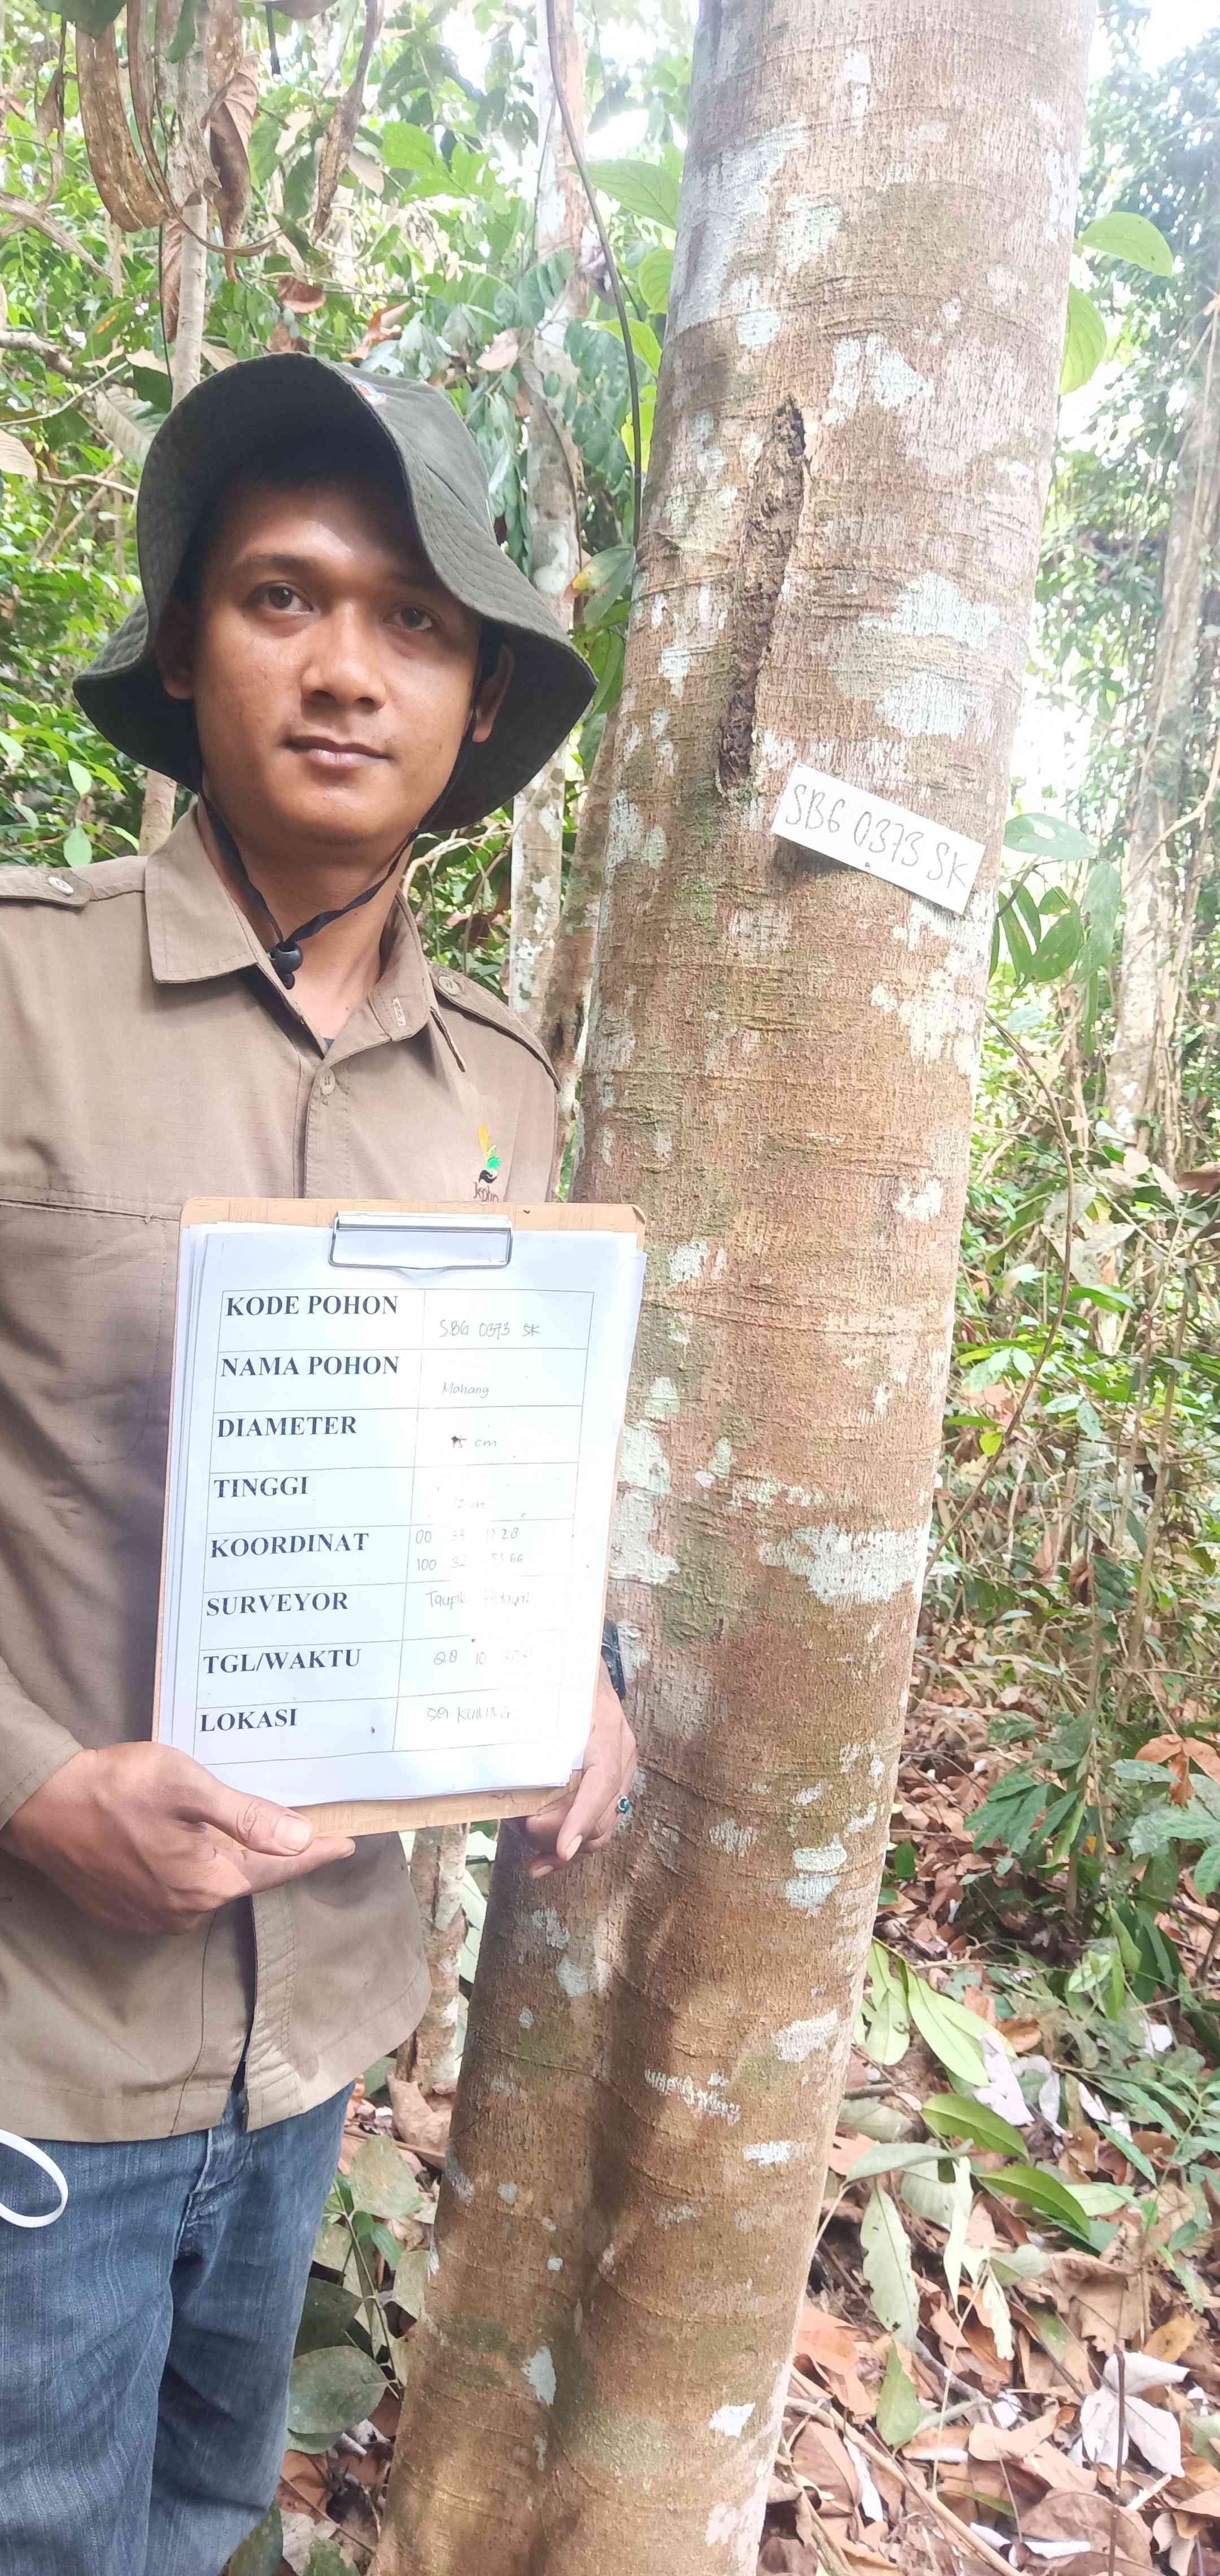 SBG 0373 SK
KODE POHON
SBG 0373 SK
NAMA POHON
Mahang
DIAMETER
cm
TINGGI
KOORDINAT
00 33 28
100 32 66
SURVEYOR
Taupik Hidayat
TGL/WAKTU
28 10
LOKASI
SEI KUNING